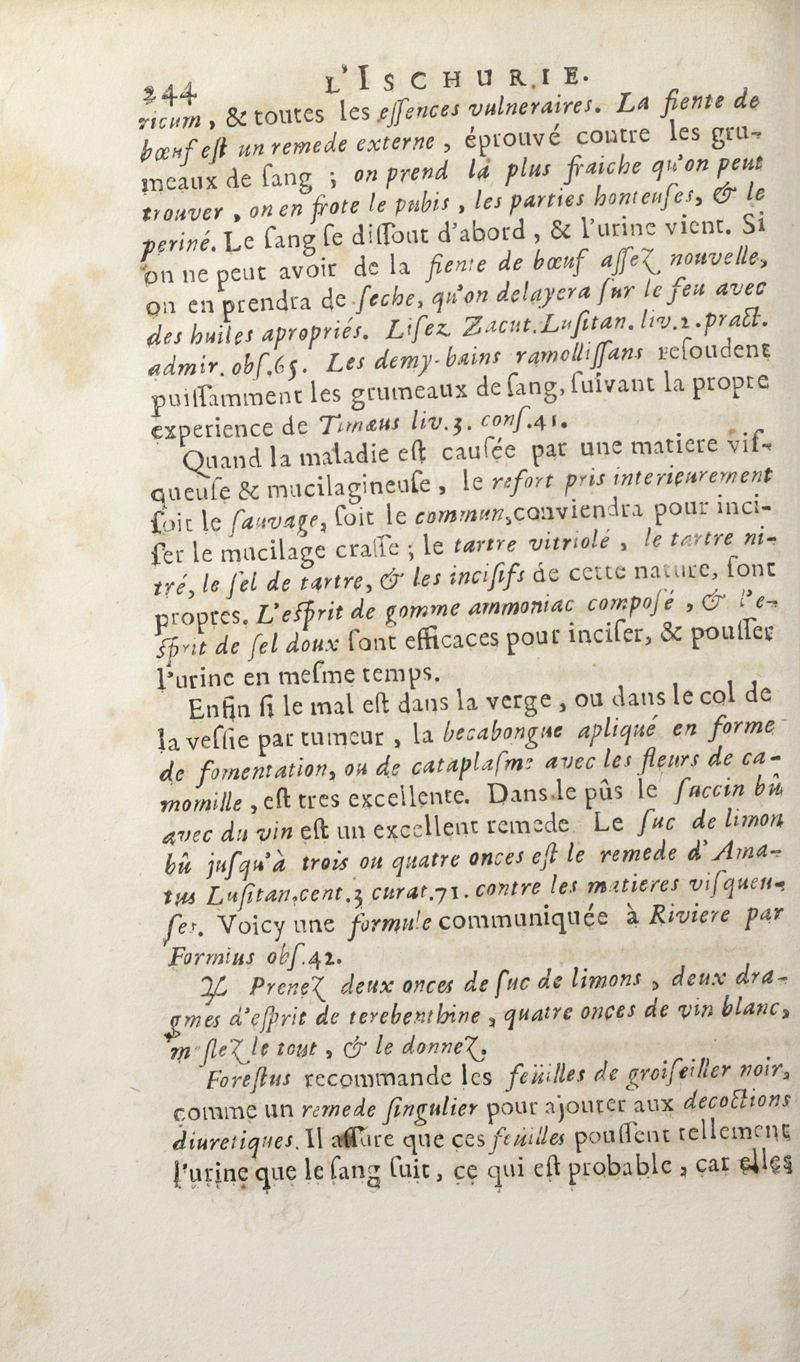 244 L'ISCHURIE.
ricum, & toutes les essences vulneraires. La fiente de
bœuf est un remede externe, éprouvé contre les gru-
meaux de sang ; on prend la plus fraiche qu'on peut
trouver, on en frote le pubis, les parties honteuses, & le
periné. Le sang se dissout d'abord, & l'urine vient. Si
on ne peut avoir de la fiente de bœuf assez nouvelle,
on en prendra de seche, qu'on delayera sur le feu avec
des huiles apropriés. Lisez Zacut. Lusitan. liv.2. pract.
admir. obs.65. Les demy-bains ramollissans resoudent
puissamment les grumeaux de sang, suivant la propre
experience de Timæus liv.3. cons.41.
Quand la maladie est causée par une matiere vis-
queuse & mucilagineuse, le refort pris interieurement
soit le sauvage, soit le commun, conviendra pour inci-
ser le mucilage crasse ; le tartre vitriolé, le tartre ni-
tré, le sel de tartre, & les incisifs de cette nature, sont
propres. L'esprit de gomme ammoniac composé, & l'e-
sprit de sel doux sont efficaces pour inciser, & pousser
l'urine en mesme temps.
Enfin si le mal est dans la verge, ou dans le col de
la vessie par tumeur, la becabongue apliqué en forme
de fomentation, ou de cataplasme avec les fleurs de ca-
momille, est tres excellente. Dans le pûs le succin bû
avec du vin est un excellent remede. Le suc de limon
bû jusqu'à trois ou quatre onces est le remede d'Ama-
tus Lusitan. cent.3 curat.71. contre les matieres visqueu-
ses. Voicy une formule communiquée à Riviere par
Formius obs.42.
♃ Prenez deux onces de suc de limons, deux dra-
gmes d'esprit de terebenthine, quatre onces de vin blanc,
mêlez le tout, & le donnez.
Forestus recommande les feüilles de groiseiller noir,
comme un remede singulier pour ajouter aux decoctions
diuretiques. Il assure que ces feüilles poussent tellement
l'urine que le sang suit, ce qui est probable, car elles